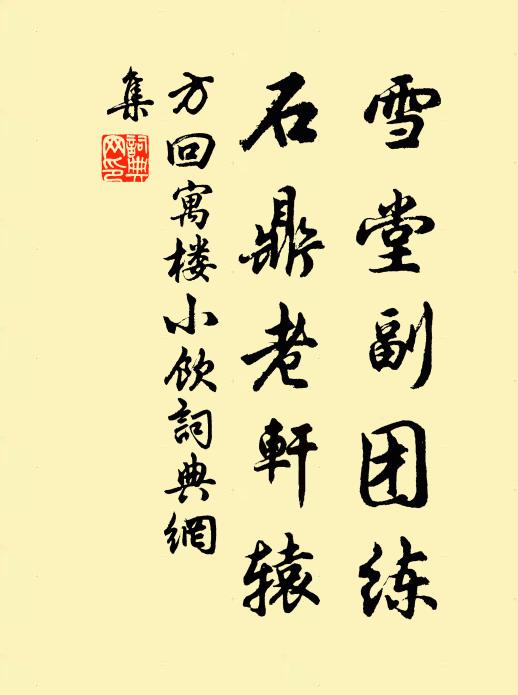 雪堂副团练
石鼎老軒辕
方回寓楼小飲詞典網
集
詞典
网印